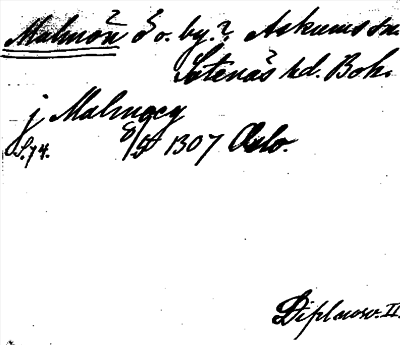 Malmön Ö o. by.? Askums sn.
Sotenäs hd. Boh.
j Malmöey
8/5 1307 Oslo.
S. 74.
Diplomv. II.